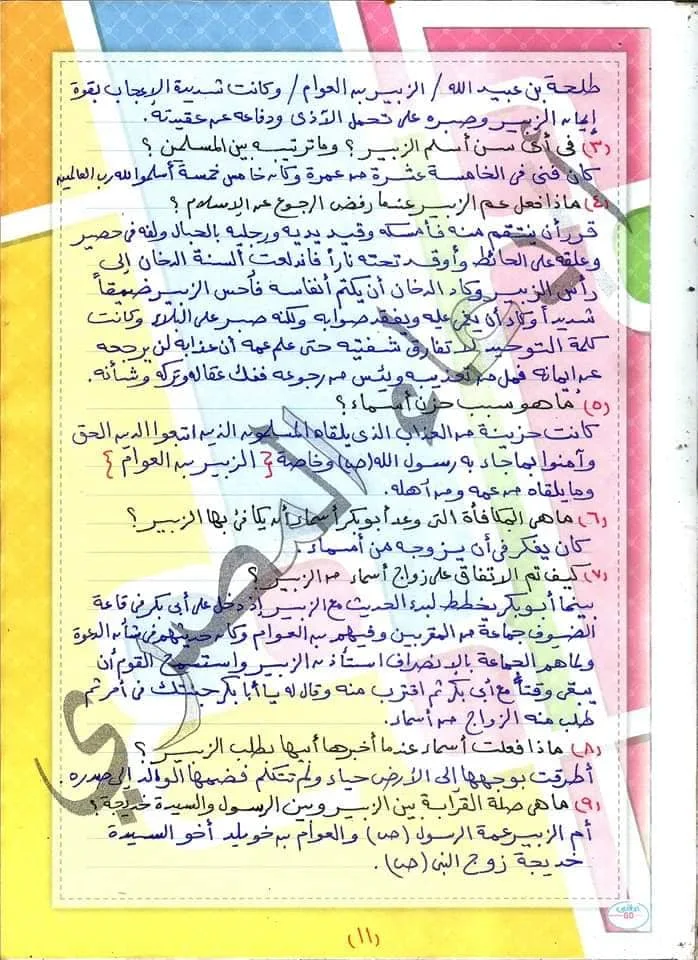 طلحة بن عبيد الله / الزبير بن العوام / وكانت شديدة الإعجاب بقوة
إيمان الزبير وصبره على تحمل الأذى ودفاعه عن عقيدته.
(٣) فى أى سن أسلم الزبير؟ وما ترتيبه بين المسلمين؟
كان فتى فى الخامسة عشرة من عمرة وكان خامس خمسة أسلموا لله رب العالمين
(٤) ماذا فعل عم الزبير عندما رفض الرجوع عن الإسلام؟
قرر أن ينتقم منه فأمسكه وقيد يديه ورجليه بالحبال ولفه فى حصير
وعلقه على الحائط وأوقد تحته ناراً فاندلعت ألسنة الدخان إلى
رأس الزبير وكاد الدخان أن يكتم أنفاسه فأحس الزبير ضيقاً
شديداً وكاد أن يغمى عليه ويفقد صوابه ولكنه صبر على البلاء وكانت
كلمة التوحيد لا تفارق شفتيه حتى علم عمه أن عذابه لن يرجعه
عن إيمانه فمل من تعذيبه ويئس من رجوعه ففك عقاله وتركه وشأنه.
(٥) ما هو سبب حزن أسماء؟
كانت حزينة من العذاب الذى يلقاه المسلمون الذين اتبعوا الدين الحق
وآمنوا بما جاء به رسول الله (ص) وخاصة { الزبير بن العوام }
وما يلقاه من عمه ومن أهله.
(٦) ما هى المكافأة التى وعد أبو بكر أسماء أن يكافئ بها الزبير؟
كان يفكر فى أن يزوجه من أسماء.
(٧) كيف تم الاتفاق على زواج أسماء من الزبير؟
بينما أبو بكر يخطط لبدء الحديث مع الزبير إذ دخل على أبى بكر فى قاعة
الضيوف جماعة من المقربين وفيهم بن العوام وكان حديثهم فى شأن الدعوة
ولما هم الجماعة بالانصراف استأذن الزبير واستسمح القوم أن
يبقى وقتاً مع أبى بكر ثم اقترب منه وقال له يا أبا بكر جئتك فى أمر ثم
طلب منه الزواج من أسماء.
(٨) ماذا فعلت أسماء عندما أخبرها أبيها بطلب الزبير؟
أطرقت بوجهها الى الأرض حياء ولم تتكلم فضمها الوالد إلى صدره.
(٩) ما هى صلة القرابة بين الزبير وبين الرسول والسيدة خديجة؟
أم الزبير عمة الرسول (ص) والعوام بن خويلد أخو السيدة
خديجة زوج النبى (ص).
(١١)